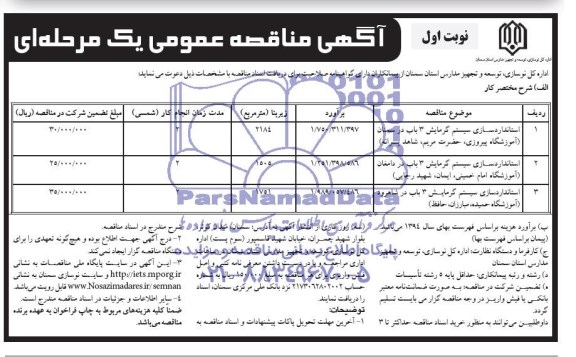 نوبت اول
آگهی مناقصه عمومی یک مرحله‌ای
اداره کل نوسازی، توسعه و تجهیز مدارس استان سمنان از پیمانکاران دارای گواهینامه صلاحیت برای دریافت اسناد مناقصه با مشخصات ذیل دعوت می نماید:
الف) شرح مختصر کار
ردیف موضوع مناقصه برآورد زیربنا (مترمربع) مدت زمان انجام کار (شمسی) مبلغ تضمین شرکت در مناقصه (ریال)
۱ استانداردسازی سیستم گرمایش ۳ باب در سمنان ۱/۷۵۰/۳۱۱/۳۹۷ ۲۱۸۴ ۲ ۳۰/۰۰۰/۰۰۰
(آموزشگاه پیروزی، حضرت مریم، شاهد پسرانه)
۲ استانداردسازی سیستم گرمایش ۳ باب در دامغان ۱۵۰۵ ۲ ۲۵/۰۰۰/۰۰۰
(آموزشگاه امام خمینی، ایمان، شهید رجایی)
۳ استانداردسازی سیستم گرمایش ۳ باب در شاهرود ۲ ۳۵/۰۰۰/۰۰۰
(آموزشگاه حمیده، مبارزان، حافظ)
ParsNamadData
پایگاه اطلاع رسانی مناقصه و مزایده
۰۲۱-۸۸۳۴۹۶۷۰-۵
ب) برآورد هزینه براساس فهرست بهای سال ۱۳۹۴ می‌باشد.
(پیمان براساس فهرست بها)
ج) کارفرما و دستگاه نظارت: اداره کل نوسازی، توسعه و تجهیز
مدارس استان سمنان
د) رشته و رتبه پیمانکاری: حداقل پایه ۵ رشته تأسیسات
ه) تضمین شرکت در مناقصه: به صورت ضمانت‌نامه معتبر
بانکی یا فیش واریز در وجه مناقصه گزار می بایست تسلیم
گردد.
داوطلبین می‌توانند به منظور خرید اسناد مناقصه حداکثر تا ۳
بلوار شهید چمران، خیابان شهید قاسمپور (سوم پستی) اداره
حساب ۲۱۷۳۰۶۲۸۰۲۰۰۲ نزد بانک ملی مرکزی سمنان، اسناد
را دریافت نمایند.
توضیحات:
۱- آخرین مهلت تحویل پاکات پیشنهادات و اسناد مناقصه به
شرح مندرج در اسناد مناقصه.
۲- درج آگهی جهت اطلاع بوده و هیچ‌گونه تعهدی را برای
دستگاه مناقصه گزار ایجاد نمی‌کند.
۳- این آگهی در سایت پایگاه ملی مناقصات به نشانی
http://iets.mporg.ir و سایت نوسازی سمنان به نشانی
www.Nosazimadares.ir/semnan قابل رویت می‌باشد.
۴- سایر اطلاعات و جزئیات در اسناد مناقصه مندرج است.
ضمناً کلیه هزینه‌های مربوط به چاپ فراخوان به عهده برنده
مناقصه می‌باشد.